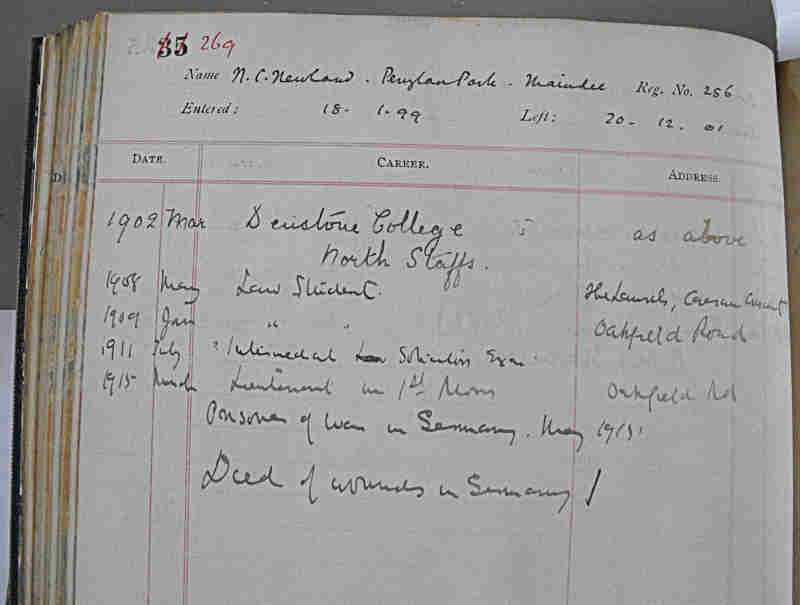 35 269
Name N. C. Newland. Penylan Park. Maindee Reg. No. 286
Entered: 18. 1. 99 Left: 20. 12. 01
DATE. CAREER. ADDRESS.
1902 Mar Denstone College as above
North Staffs.
1908 May Law Student. The Laurels, Caerau Crescent
1909 Jan " " Oakfield Road
1911 July "Intermediate Law Solicitors Exam"
1915 March Lieutenant in 1st Mons Oakfield Rd
Prisoner of War in Germany. May 1915.
Died of wounds in Germany /